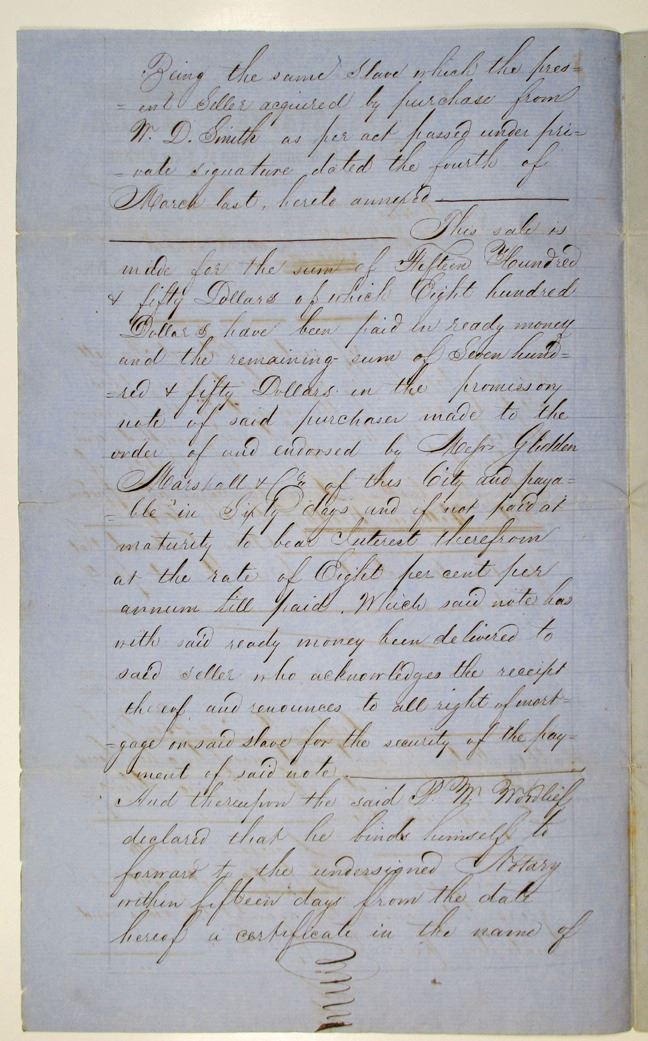 Being the same slave which the pres=
=ent Seller acquired by purchase from
W. D. Smith as per act passed under pri=
=vate signature dated the fourth of
March last, hereto annexed
This sale is
made for the sum of Fifteen Hundred
& fifty Dollars of which Eight hundred
Dollars have been paid in ready money
and the remaining sum of Seven hund=
=red & fifty Dollars in the promissory
note of said purchaser made to the
order of and endorsed by Messrs Glidden
Marshall & Co. of this City and paya=
=ble in Sixty days and if not paid at
maturity to bear Interest therefrom
at the rate of Eight per cent per
annum till paid. Which said note has
with said ready money been delivered to
said seller who acknowledges the receipt
thereof and renounces to all right of mort=
=gage on said slave for the security of the pay=
ment of said note.
And thereupon the said P. M.
declared that he binds himself to
forward to the undersigned Notary
within fifteen days from the date
hereof a certificate in the name of